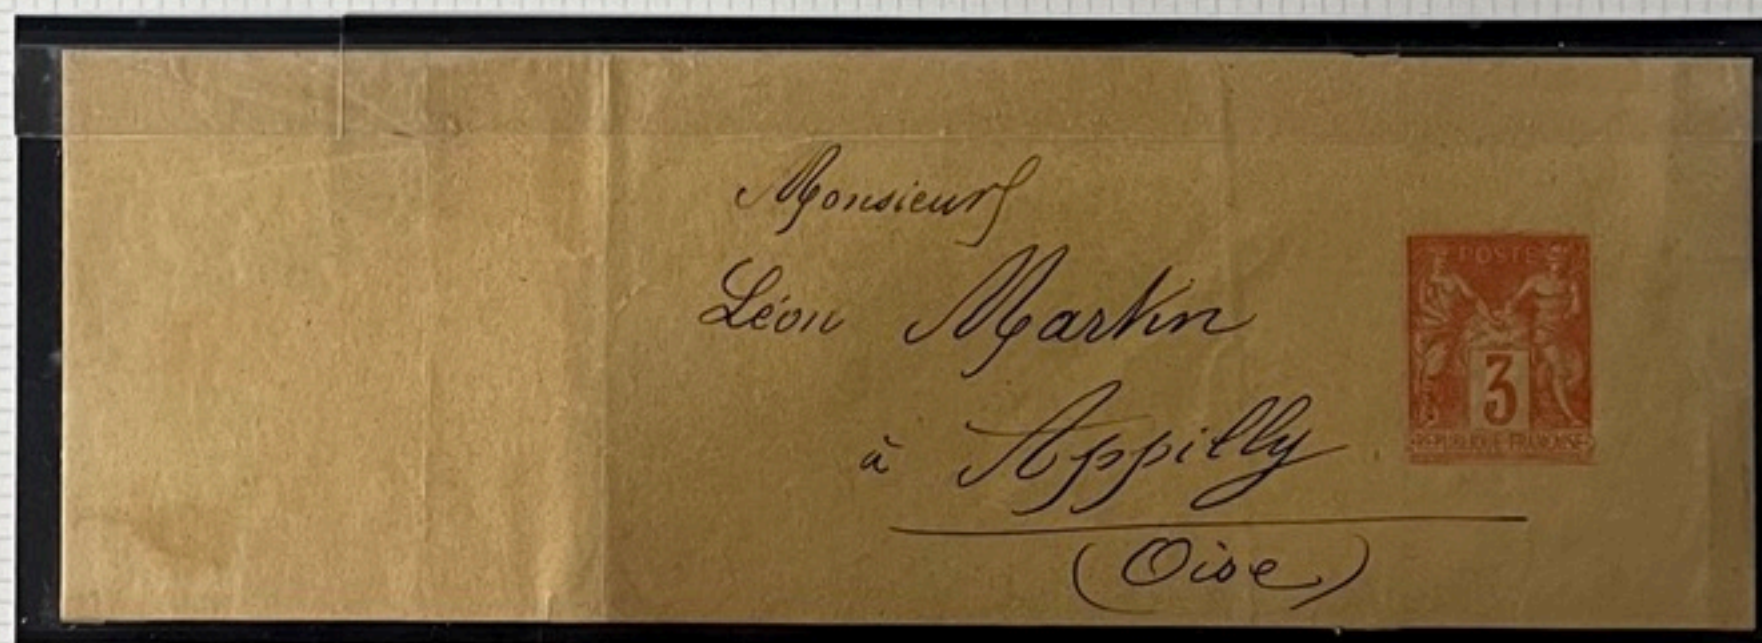 Monsieur
Léon Martin
à Appilly
(Oise)
POSTE
3
REPUBLIQUE FRANCAISE